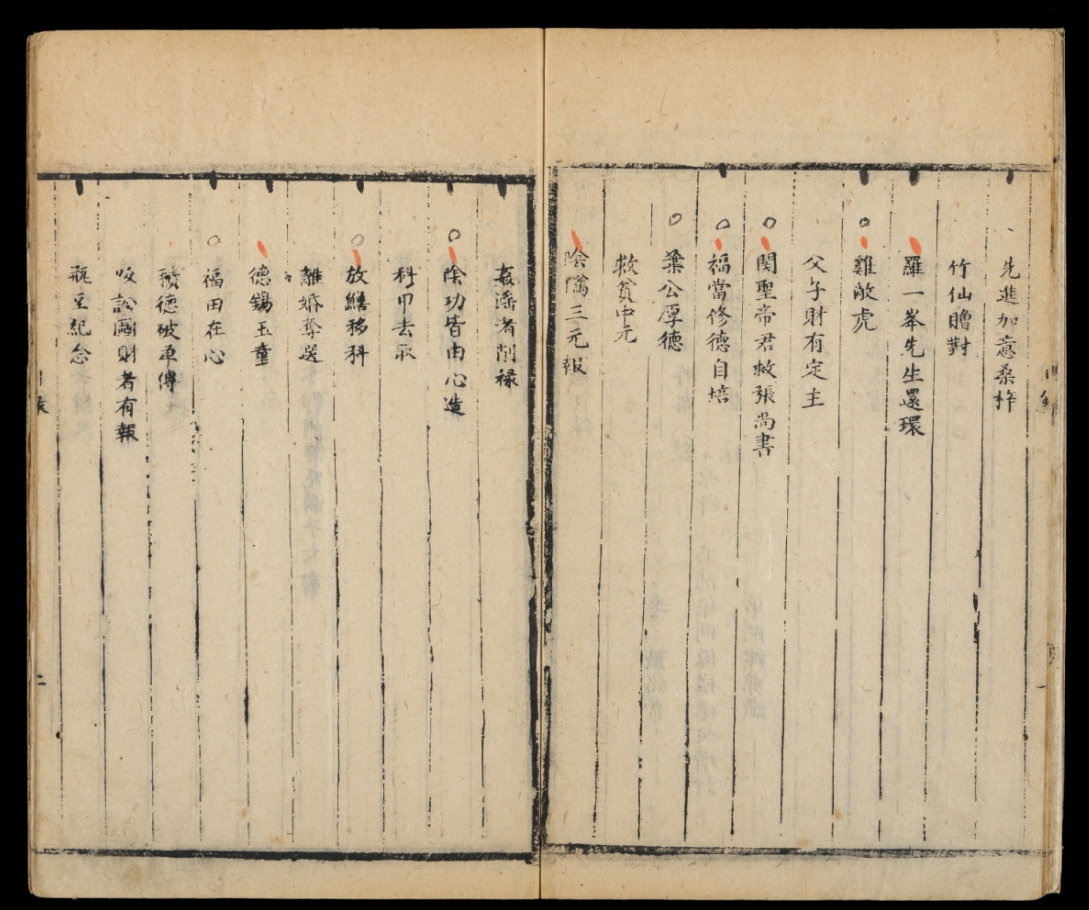 先進加意桑梓
竹仙贈對
羅一峯先生還環
雞敵虎
父子財有定主
関聖帝君救張尚書
福當修德自培
葉公厚德
救貧中元
陰騭三元報
姦淫者削祿
陰功皆由心造
科甲去取
放鱔移科
離婚奪選
德錫玉童
福田在心
積德破軍傅
唆訟圖財者有報
瓶豆紀念
目錄
二